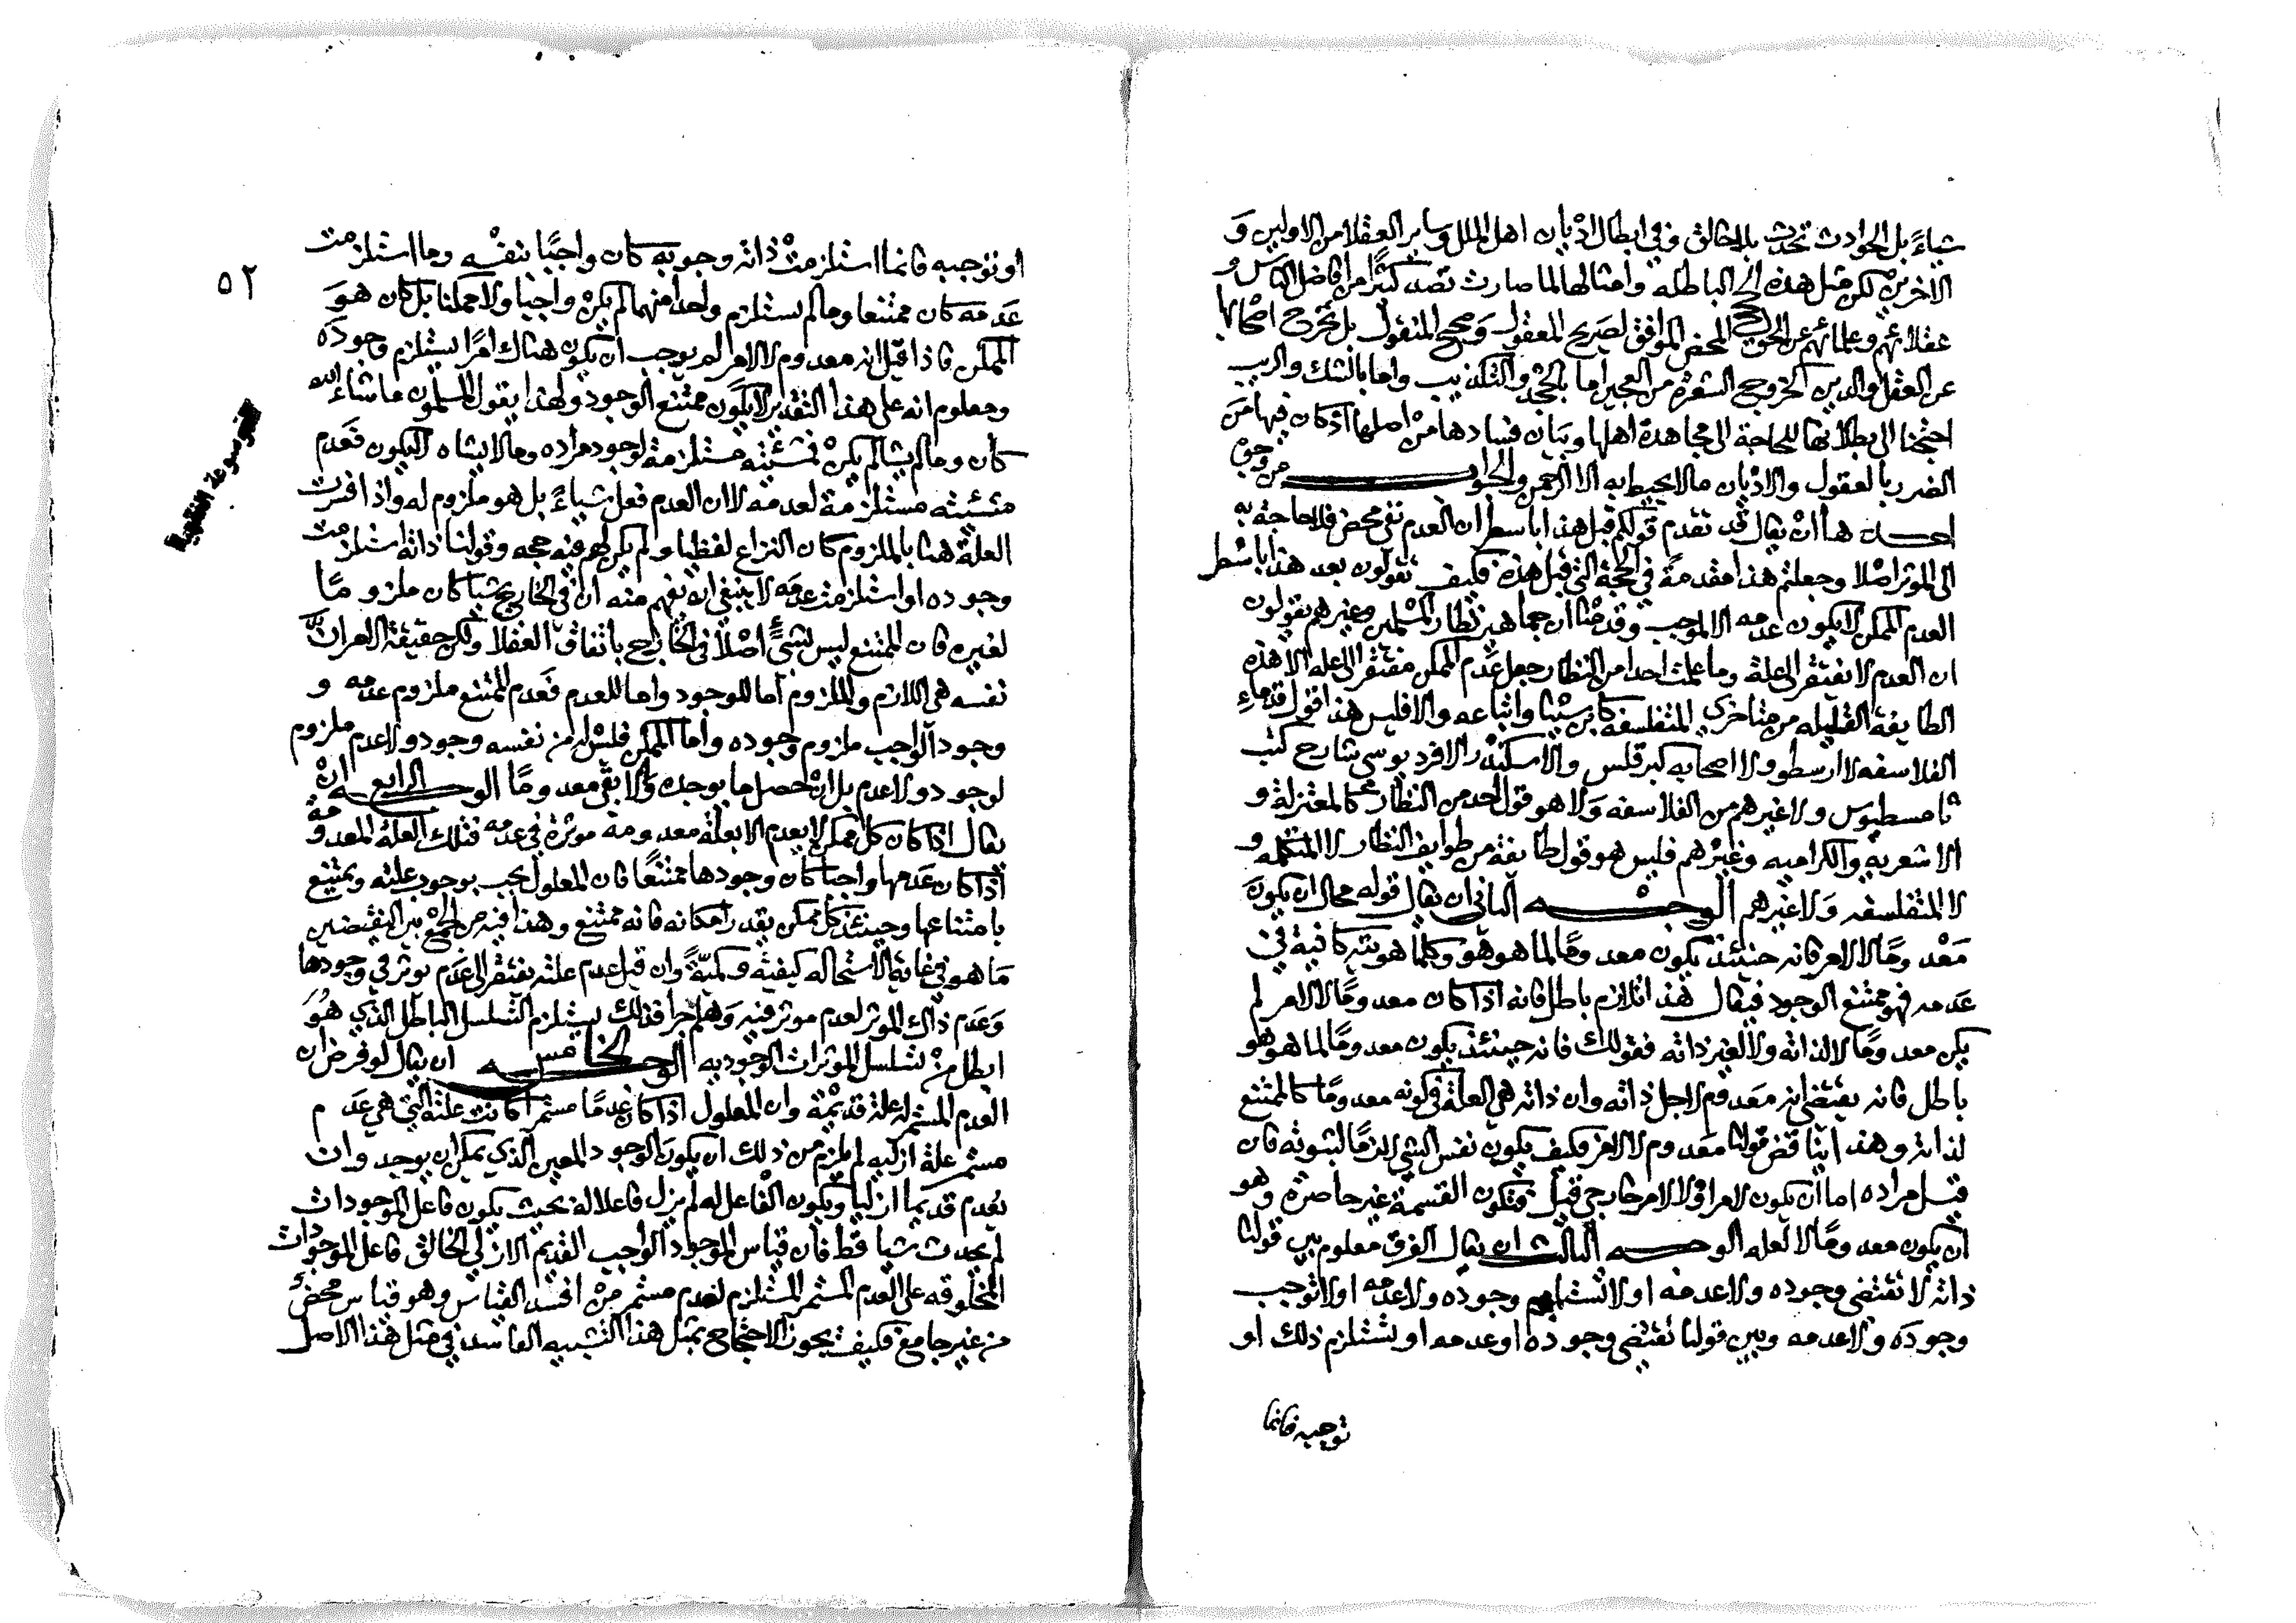 شياءً بل الحوادث تحدث بلا خالق وفي ابطال اديان اهل الملل وساير العقلا من الاولين و
الاخرين لكن مثل هذه الحجج الباطله وامثالها لما صارت تصد كثيرًا من افاضل الناس و
عقلائهم وعلمائهم عن الحق المحض الموافق لصريح المعقول وصحيح المنقول بل تخرج اصحابها
عن العقل والدين كخروج الشعرة من العجين اما بالجحد والتكذيب واما بالشك والريب
احتجنا الى بطلانها للحاجة الى مجاهدة اهلها وبيان فسادها من اصلها اذ كان فيها من
الضرر بالعقول والاديان ما لا يحيط به الا الرحمن والجواب من وجوه
احدها أن يقال قد تقدم قولكم قبل هذا باسطر ان العدم نفي محض فلا حاجة به
الى الموثر اصلا وجعلتم هذا مقدمة في الحجة التي قبل هذه فكيف تقولون بعد هذا باسطر
العدم الممكن لا يكون عدمه الا لموجب وقدمنا ان جماهير نظار المسلمين وغيرهم يقولون
ان العدم لا يفتقر الى علة وما علمت احدا من النظار جعل عدم الممكن مفتقر الى عله الا هذه
الطايفة القليله من متاخري المتفلسفه كابن سينا واتباعه والا فليس هذا قول قدماءِ
الفلاسفه لا ارسطو ولا اصحابه كبرقلس والاسكندر الافرديوسي شارح كتبه
ثامسطيوس ولا غيرهم من الفلاسفه ولا هو قول احد من النظار كالمعتزلة و
الاشعريه والكراميه وغيرهم فليس هو قول طايفة من طوايف النظار لا المتكلمه و
لا المتفلسفه ولا غيرهم الوجه الثاني ان يقال قوله محال ان يكون
مَعْدومًا لا لامر فانه حينئذ يكون معدومًا لما هو هو وكلما هويته كافية في
عدمه فهو ممتنع الوجود فيقال هذا تلازم باطل فانه اذا كان معدومًا لا لامر لم
يكن معدومًا لا لذاته ولا لغير ذاته فقولك فانه حينئذ يكون معدومًا لما هو هو
باطل فانه يقتضي انه معدوم لاجل ذاته وان ذاته هي العلة في كونه معدومًا كالممتنع
لذاته وهذا يناقض قولنا معدوم لا لامر فكيف يكون نفس الشي لازمًا لثبوته فان
قيل مراده اما أن يكون لامر او لا لامر خارجي قيل فتكون القسمة غير حاصرة وهو
ان يكون معدومًا لا لعله الوجه الثالث ان يقال الفرق معلوم بين قولنا
ذاته لا تقتضي وجوده ولا عدمه او لا تستلزم وجوده ولا عدمه او لا توجب
وجوده ولا عدمه وبين قولنا تقتضي وجوده او عدمه او يستلزم ذلك او
توجبه فانما
٥٢
او توجبه فانما استلزمت ذاته وجوبه كان واجبًا بنفسه وما استلزمت
عدمه كان ممتنعا وما لم يستلزم واحدا منهما لم يكن واجبا ولا ممكنا بل كان هو
الممكن فاذا قيل انه معدوم لا لامر لم يوجب ان يكون هناك امرًا يستلزم وجوده
ومعلوم انه على هذا التقدير لا يكون ممتنع الوجود ولهذا يقول المسلمون ما شاء الله
كان وما لم يشا لم يكن فمشئته مستلزمة لوجود مراده وما لا يشاه لا يكون فعدم
مشئته مستلزمة لعدمه لا ان العدم فعل شياءً بل هو ملزوم له واذا فسرت
العلة هنا بالملزوم كان النزاع لفظيا ولم يكن لهم فيه حجه وقولنا ذاته استلزمت
وجوده او استلزمت عدمه لا ينبغي ان يفهم منه ان في الخارج شيا كان ملزومًا
لغيره فان الممتنع ليس بشيءٍ اصلا في الخارج باتفاق العقلا ولكن حقيقة الامر ان
نفسه هي اللازم والملزوم اما للوجود واما للعدم فعدم الممتنع ملزوم عدمه و
وجود الواجب ملزوم وجوده واما الممكن فليس له من نفسه وجود ولا عدم ملزوم
لوجود ولا عدم بل ان حصل ما يوجده والا بقي معدومًا الوجه الرابع ان
يقال اذا كان كل ممكن لا يعدم الا بعلة معدومة موثرة في عدمه فتلك العلة المعدومة
اذا كان عدمها واجبا كان وجودها ممتنعًا فان المعلول يجب بوجوب علته ويمتنع
بامتناعها وحينئذ كل ممكن يقدر امكانه فانه ممتنع وهذا فيه من الجمع بين النقيضين
ما هو في غاية الاستحاله كيفية وكمية وان قيل عدم علته يفتقر الى عدم يوثر في وجودها
وعدم ذاك الموثر لعدم موثر فيه وهلم جرا فذلك يستلزم التسلسل الباطل الذي هو
ابطل من تسلسل الموثرات الوجوديه الوجه الخامس ان يقال لو فرض ان
العدم المستمر له علة قديمة وان المعلول اذا كان عدمًا مستمرا كانت علته التي هي عدم
مستمر علة ازليه لم يلزم من ذلك ان يكون الوجود المعين الذي يمكن ان يوجد وان
يعدم قديما ازليا ويكون الفاعل له لم يزل فاعلا له بحيث يكون فاعل الموجودات
لم يحدث شيا قط فان قياس الموجود الواجب القديم الازلي الخالق فاعل الموجودات
المخلوقه على العدم المستمر المستلزم لعدم مستمر من افسد القياس وهو قياس محض
من غير جامع فكيف يجوز الاحتجاج بمثل هذا التشبيه الفاسد في مثل هذا الاصل